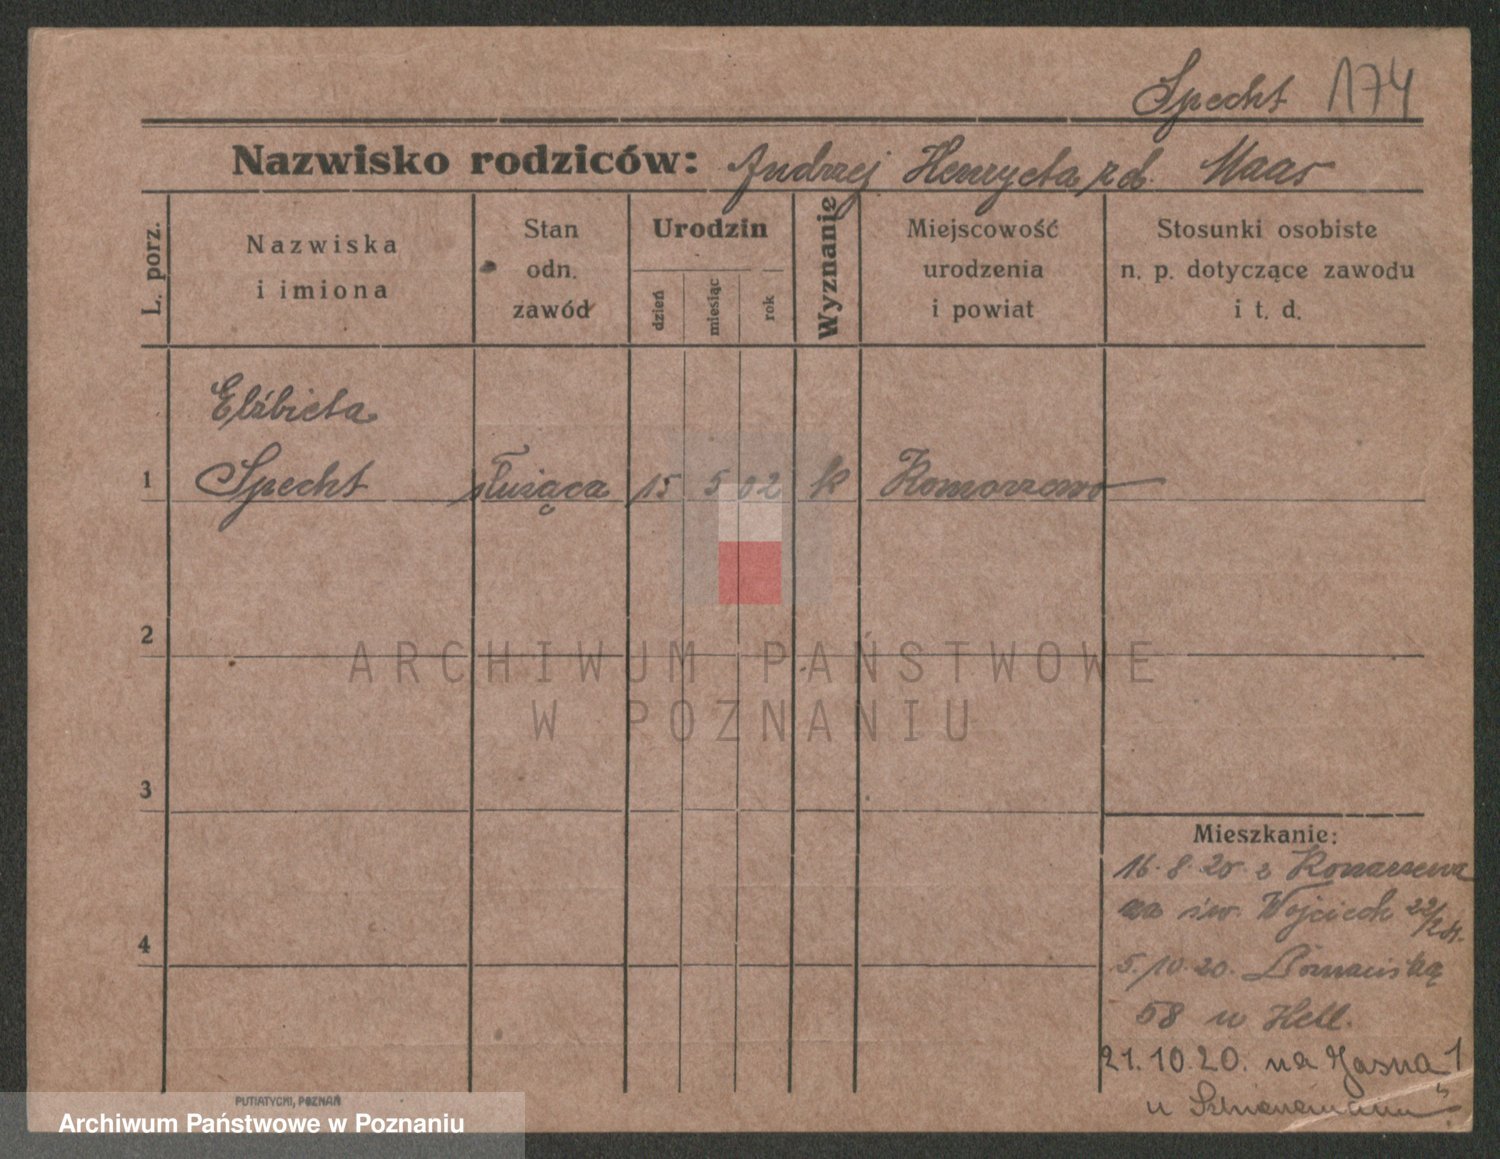 Specht 174
Nazwisko rodziców: Andrzej Henryeta zd. Maas
L. porz.
Nazwiska
i imiona
Stan
odn.
zawód
Urodzin
dzień
miesiąc
rok
Wyznanie
Miejscowość
urodzenia
i powiat
Stosunki osobiste
n. p. dotyczące zawodu
i t. d.
Elżbieta
1 Specht służąca 15 5 02 k Komorzewo
2
ARCHIWUM PAŃSTWOWE
W POZNANIU
3
Mieszkanie:
16.8.20 z Konarzewa
na św. Wojciech 22/
4
5./10.20. Poznańską
58 u Hell.
21.10.20. na Jasną 1
u
PUTIATYCKI, POZNAŃ
Archiwum Państwowe w Poznaniu